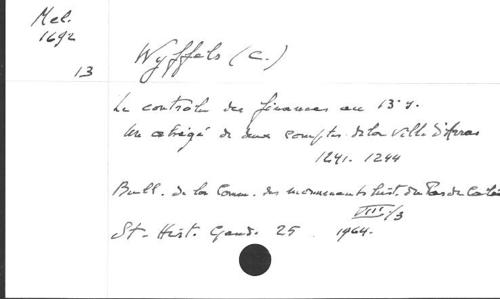 Mel.
1692
13
Wyffels (C.)
Le contrôle des finances au 13e s.
Un abrégé de deux comptes de la ville d'Arras
1241. 1244
Bull. de la Comm. des monuments hist. du Pas de Calais
VIII/3
St. Hist. Gand. 25. 1964.